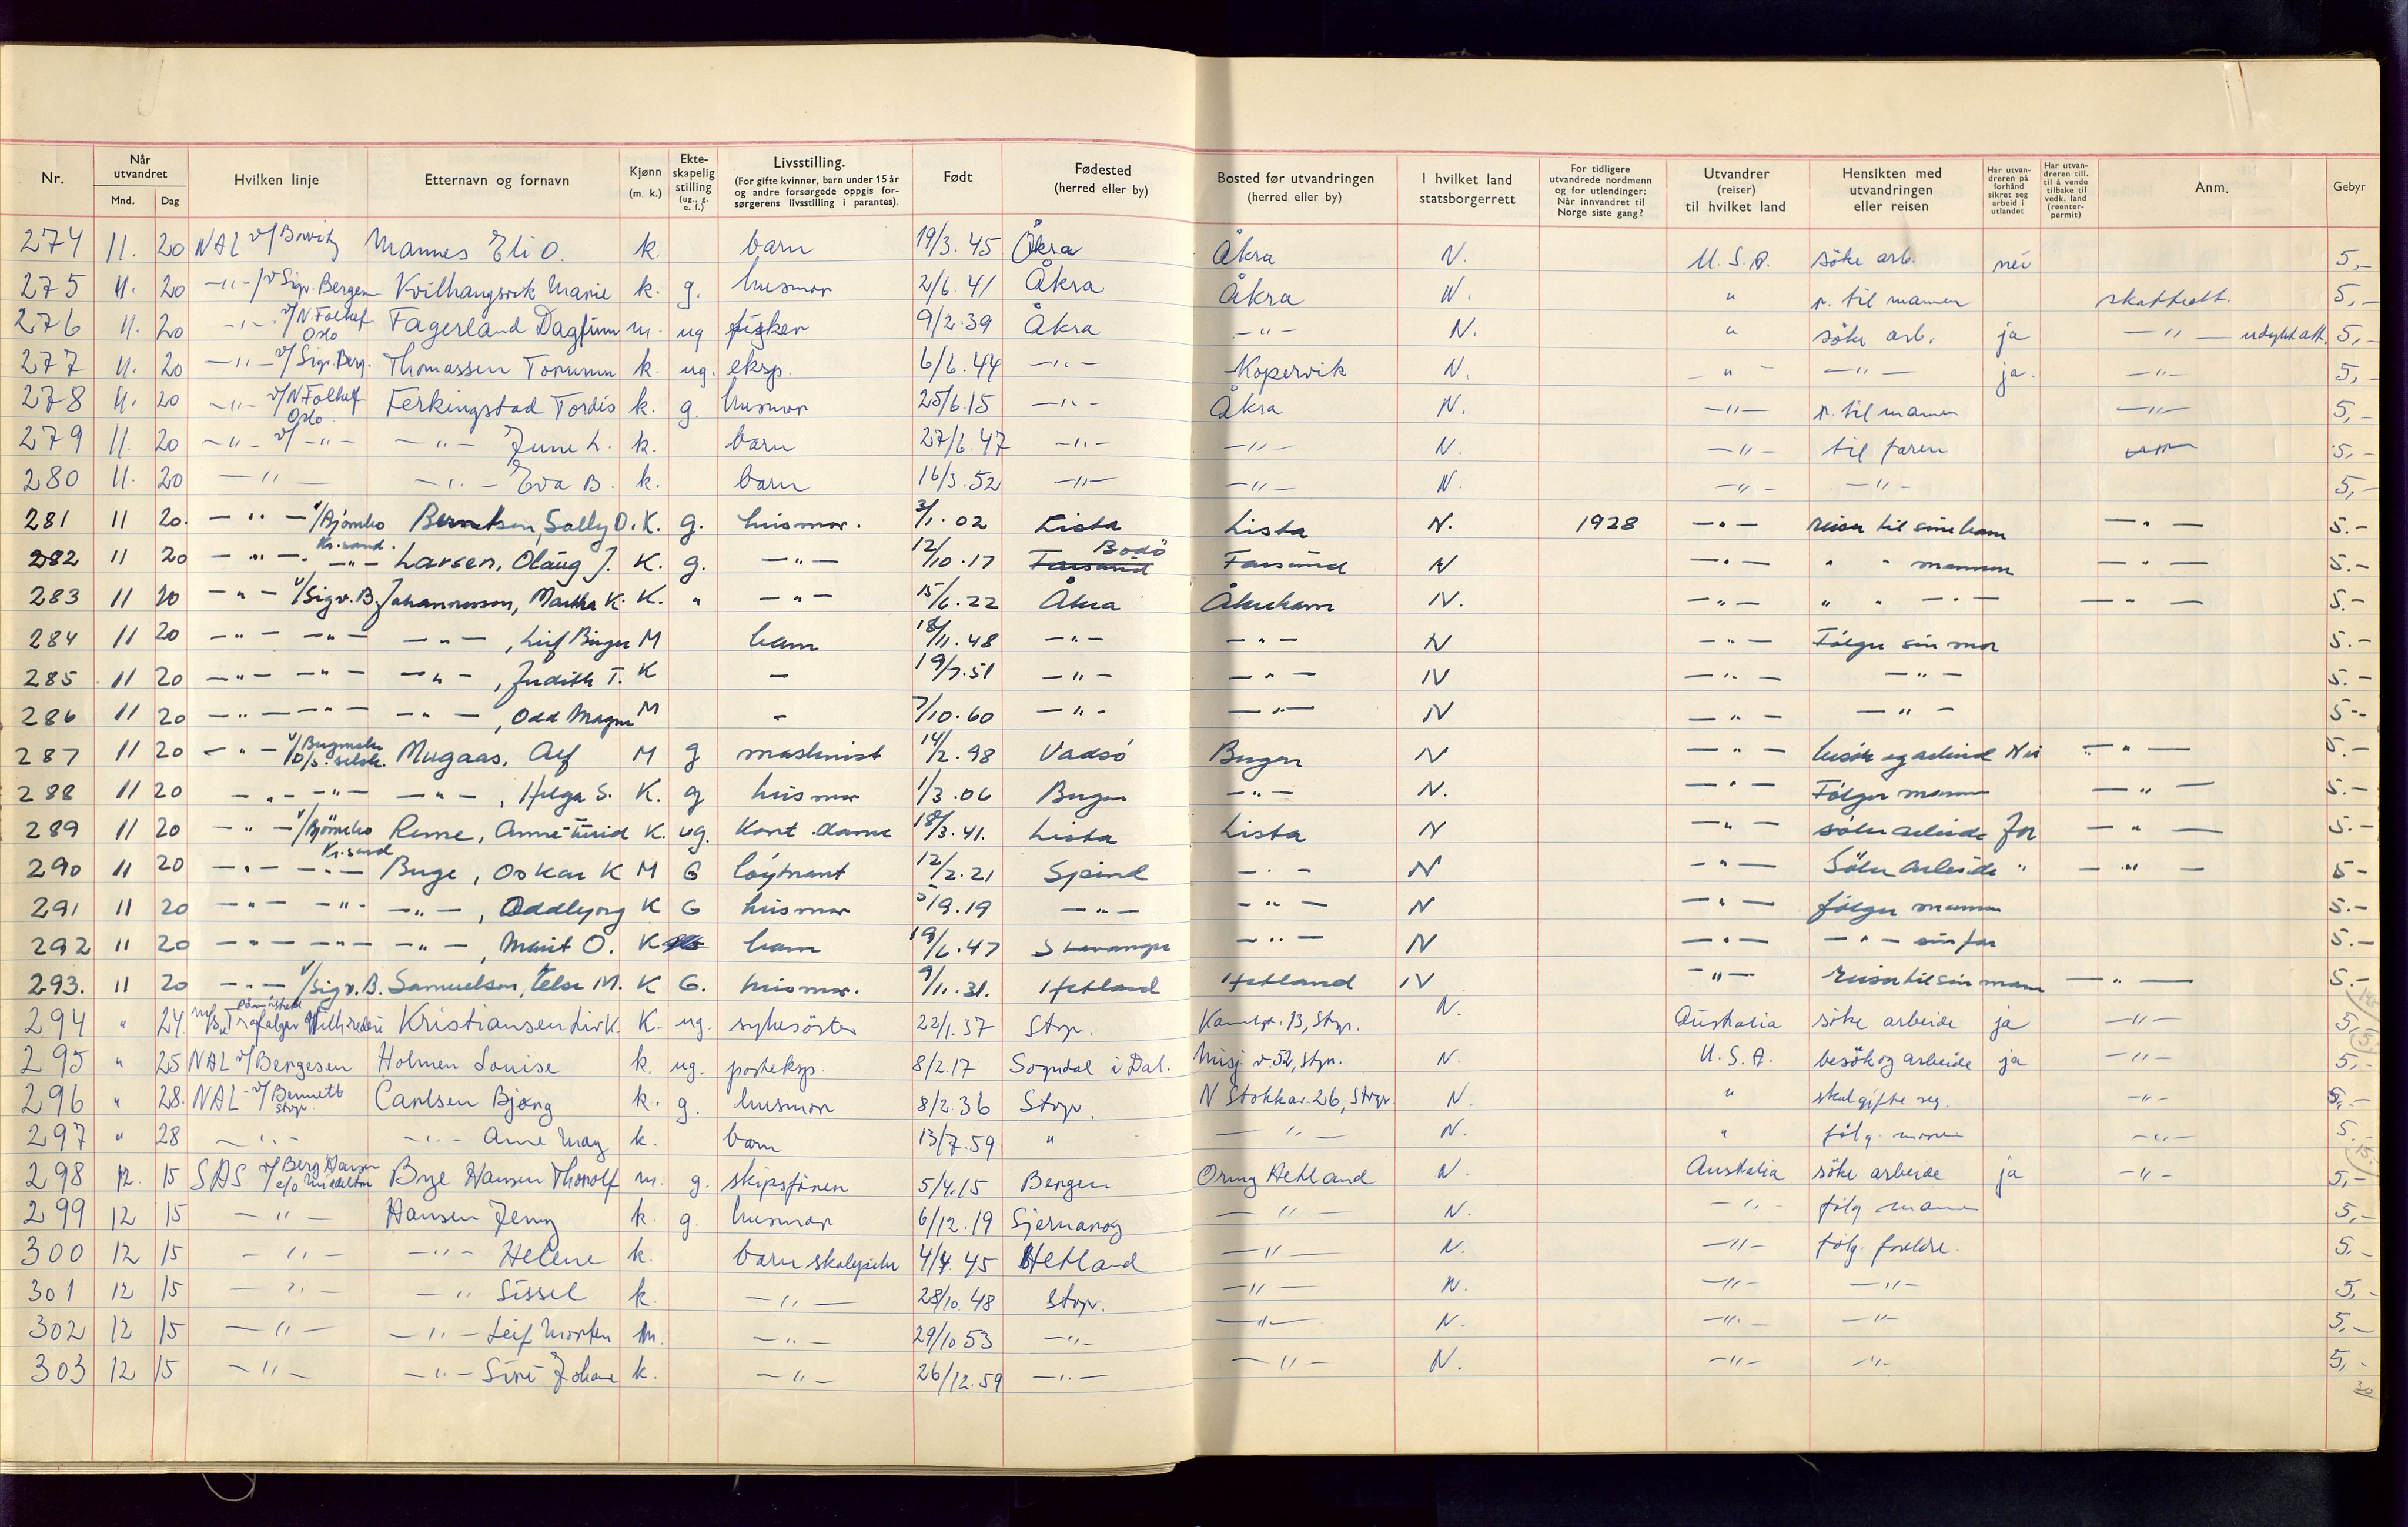 Nr. Når utvandret Mnd. Dag Hvilken linje Etternavn og fornavn Kjønn (m. k.) Ekteskapelig stilling (ug., g. e. f.) Livsstilling. (For gifte kvinner, barn under 15 år og andre forsørgede oppgis forsørgerens livsstilling i parantes). Født Fødested (herred eller by) Bosted før utvandringen (herred eller by) I hvilket land statsborgerrett For tidligere utvandrede nordmenn og for utlendinger: Når innvandret til Norge siste gang? Utvandrer (reiser) til hvilket land Hensikten med utvandringen eller reisen Har utvandreren på forhånd sikret seg arbeid i utlandet Har utvandreren till. til å vende tilbake til vedk. land (reenterpermit) Anm. Gebyr
274 11. 20 NAL v/ Mannes Eli O. k. barn 19/3.45 Åkra Åkra N. U.S.A. söke arb. nei 5,-
275 11. 20 -"- v/Sigv. Bergesen Kvilhaugsvik Marie k. g. husmor 2/6.41 Åkra Åkra N. " r. til mannen skatteatt. 5,-
276 11. 20 -"- v/N. Folkef Oslo Fagerland Dagfinn m. ug fisker 9/2.39 Åkra -"- N. " söke arb. ja -"- 5,-
277 11. 20 -"- v/Sigv. Berg. Thomassen Torunn k. ug. eksp. 6/6.44 -"- Kopervik N. -"- -"- ja. -"- 5,-
278 11. 20 -"- v/N. Folkef Oslo Ferkingstad Tordis k. g. husmor 25/6.15 -"- Åkra N. -"- r. til mannen -"- 5,-
279 11. 20 -"- v/-"- -"- June L. k. barn 27/6.47 -"- -"- N. -"- til faren 5,-
280 11. 20 -"- -"- Eva B. k. barn 16/3.52 -"- -"- N. -"- -"- 5,-
281 11 20. -"- v/Bjørnebo Kr.sand. Berntsen, Sally O. K. g. husmor. 3/1.02 Lista Lista N. 1928 -"- reiser til sine barn -"- 5.-
282 11 20 -"- -"- Larsen, Olaug J. K. g. -"- 12/10.17 Farsund Bodö Farsund N -"- " " mannen -"- 5.-
283 11 20 -"- v/Sigv. B. Johannessen, Martha K. K. " -"- 15/6.22 Åkra Åkrehamn N. -"- " " -"- -"- 5.-
284 11 20 -"- -"- -"-, Leif Birger M barn 18/11.48 -"- -"- N -"- Følger sin mor 5.-
285 11 20 -"- -"- -"-, Judith T. K - 19/7.51 -"- -"- N -"- -"- 5.-
286 11 20 -"- -"- -"-, Odd Magne M - 7/10.60 -"- -"- N -"- -"- 5.-
287 11 20 -"- v/Bergenske D/s. selsk. Mugaas, Alf M g maskinist 14/2.98 Vadsö Bergen N -"- besök og arbeid Nei -"- 5.-
288 11 20 -"- -"- -"-, Helga S. K. g husmor 1/3.06 Bergen -"- N. -"- Følger mannen -"- 5.-
289 11 20 -"- v/Bjørnebo Kr.sand Reme, Anne-Turid K. ug. Kont.dame 18/3.41. Lista Lista N -"- söker arbeide Ja -"- 5.-
290 11 20 -"- -"- Buge, Oskar K M G löytnant 12/2.21 Spind -"- N -"- Söker arbeide " -"- 5-
291 11 20 -"- -"- -"-, Oddbjørg K G husmor 5/9.19 -"- -"- N -"- følger mannen 5.-
292 11 20 -"- -"- -"-, Marit O. K barn 19/6.47 Stavanger -"- N -"- -"- sin far 5.-
293. 11 20 -"- v/Sigv. B. Samuelsen, Else M. K G. husmor. 9/1.31. Hetland Hetland N -"- Reiser til sin mann -"- 5.-
294 " 24. Trafalgar Kristiansen Liv K. K. ug. sykesöster 22/1.37 Stvgr. 13, Stvgr. N. Australia söke arbeide ja -"- 5,-
295 " 25 NAL v/Bergesen Holmen Louise k. ug. posteksp. 8/2.17 Sogndal i Dal. Misj. v. 52, Stvgr. N. U.S.A. besök og arbeide ja -"- 5,-
296 " 28. NAL v/Bennett Stvgr. Carlsen Bjørg k. g. husmor 8/2.36 Stvgr. N. Stokkav. 26, Stvgr. N. " skal gifte seg. -"- 5,-
297 " 28 -"- -"- Anne May k. barn 13/7.59 " -"- N. " følg. moren -"- 5.-
298 12. 15 SAS v/Berg Hansen Bye Hansen Thorolf m. g. skipsfører 5/4.15 Bergen Hetland N. Australia söke arbeide ja -"- 5,-
299 12 15 -"- Hansen Jenny k. g. husmor 6/12.19 Sjernarøy -"- N. -"- følg. mannen 5,-
300 12 15 -"- -"- Helene k. barn 4/4.45 Hetland -"- N. -"- følg. foreldre. 5,-
301 12 15 -"- -"- Sissel k. -"- 28/10.48 Stvgr. -"- N. -"- -"- 5,-
302 12 15 -"- -"- Leif Morten m. -"- 29/10.53 -"- -"- N. -"- -"- 5,-
303 12 15 -"- -"- Siri Johane k. -"- 26/12.59 -"- -"- N. -"- -"- 5,-
30